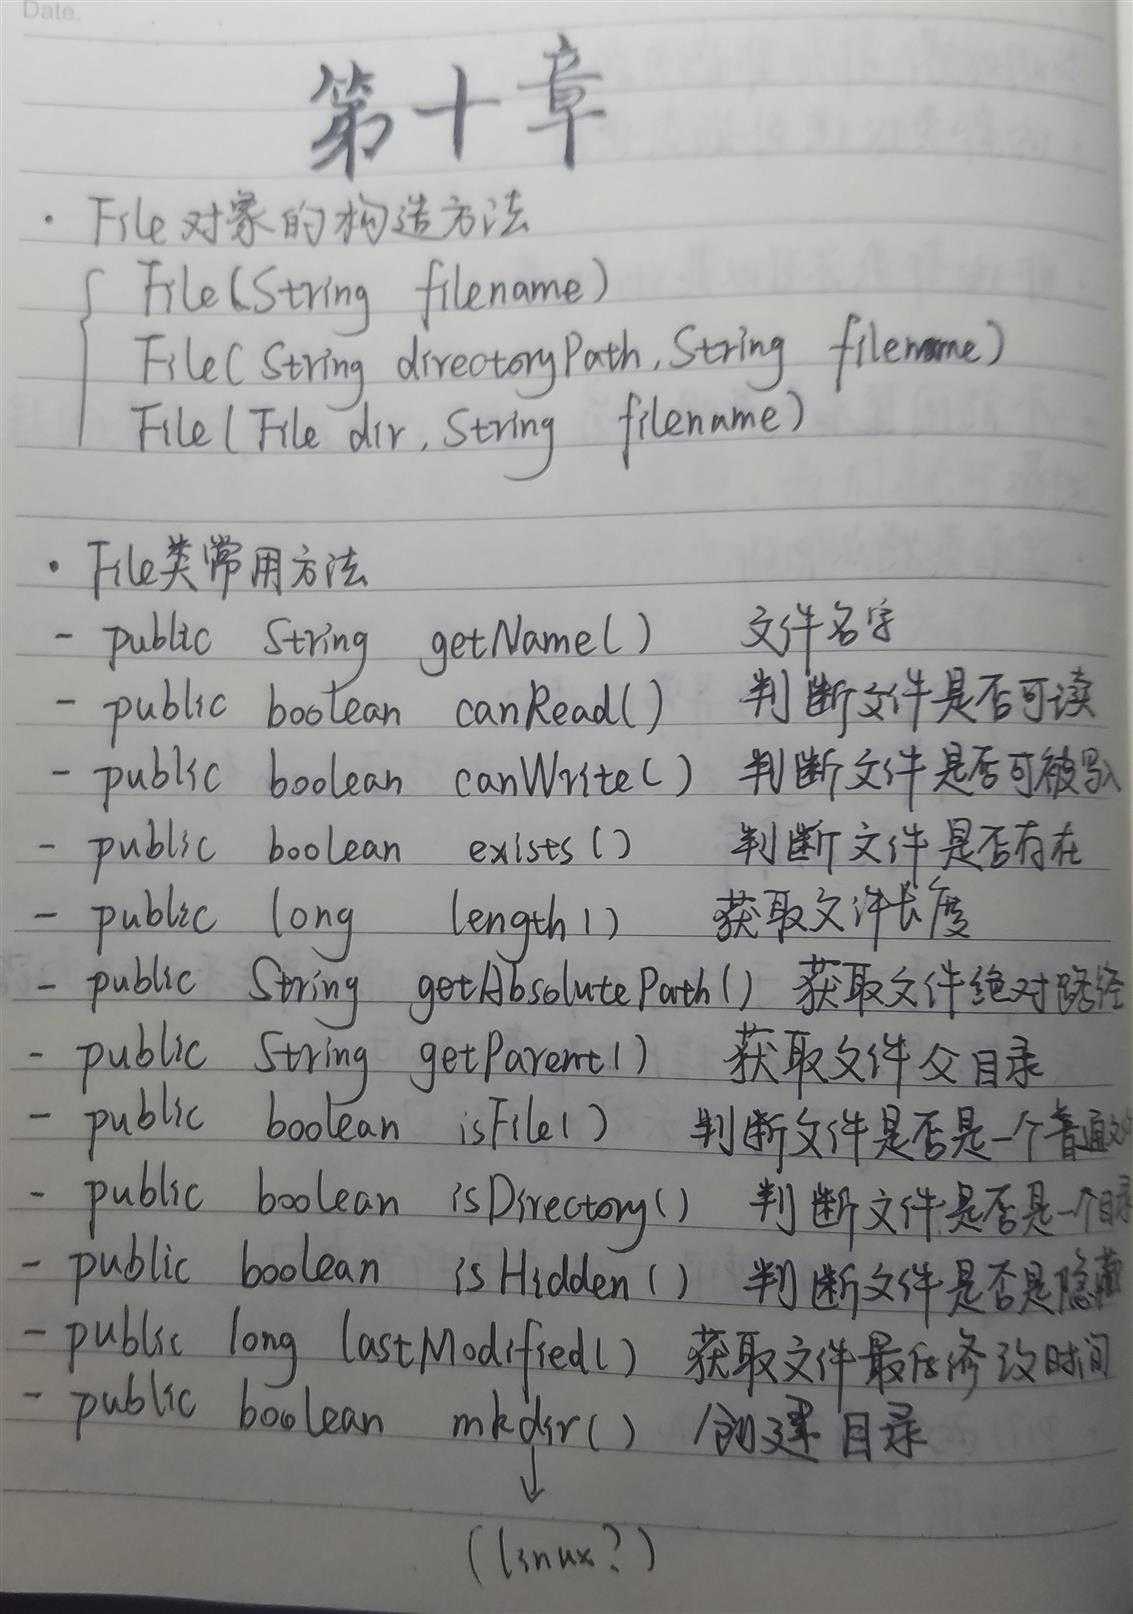 Date.
第十章
· File对象的构造方法
File(String filename)
File(String directoryPath, String filename)
File(File dir, String filename)
· File类常用方法
- public String getName() 文件名字
- public boolean canRead() 判断文件是否可读
- public boolean canWrite() 判断文件是否可被写入
- public boolean exists() 判断文件是否存在
- public long length() 获取文件长度
- public String getAbsolutePath() 获取文件绝对路径
- public String getParent() 获取文件父目录
- public boolean isFile() 判断文件是否是一个普通文件
- public boolean isDirectory() 判断文件是否是一个目录
- public boolean isHidden() 判断文件是否是隐藏
- public long lastModified() 获取文件最后修改时间
- public boolean mkdir() 创建目录
↓
(linux?)